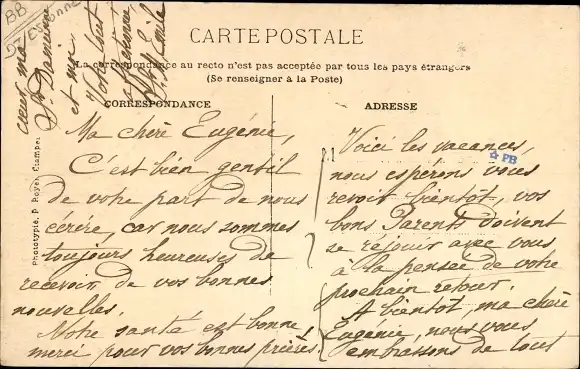 CARTE POSTALE
La correspondance au recto n'est pas acceptée par tous les pays étrangers
(Se renseigner à la Poste)
CORRESPONDANCE
Ma chère Eugénie,
C'est bien gentil
de votre part de nous
écrire, car nous sommes
toujours heureuses de
recevoir de vos bonnes
nouvelles.
Notre santé est bonne,
merci pour vos bonnes prières.
ADRESSE
Voici les vacances,
nous espérons vous
revoir bientôt, vos
bons Parents doivent
se réjouir avec vous
à la pensée de votre
prochain retour.
A bientôt, ma chère
Eugénie, nous vous
embrassons de tout
cœur, ma
et moi
Votre tout
Emile
Phototypie, P. Royer, Étampes
PB
BB
Essonne